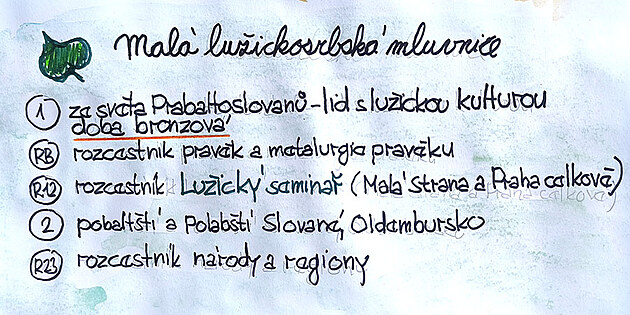 Malá lužickosrbská mluvnice
1 za světa Prabaltoslovanů - lid s lužickou kulturou
doba bronzová
RB rozcestník pravěk a metalurgie pravěku
R12 rozcestník Lužický seminář (Malá Strana a Praha celkově)
2 pobaltští a Polabští Slované, Oldambursko
R23 rozcestník národy a regiony